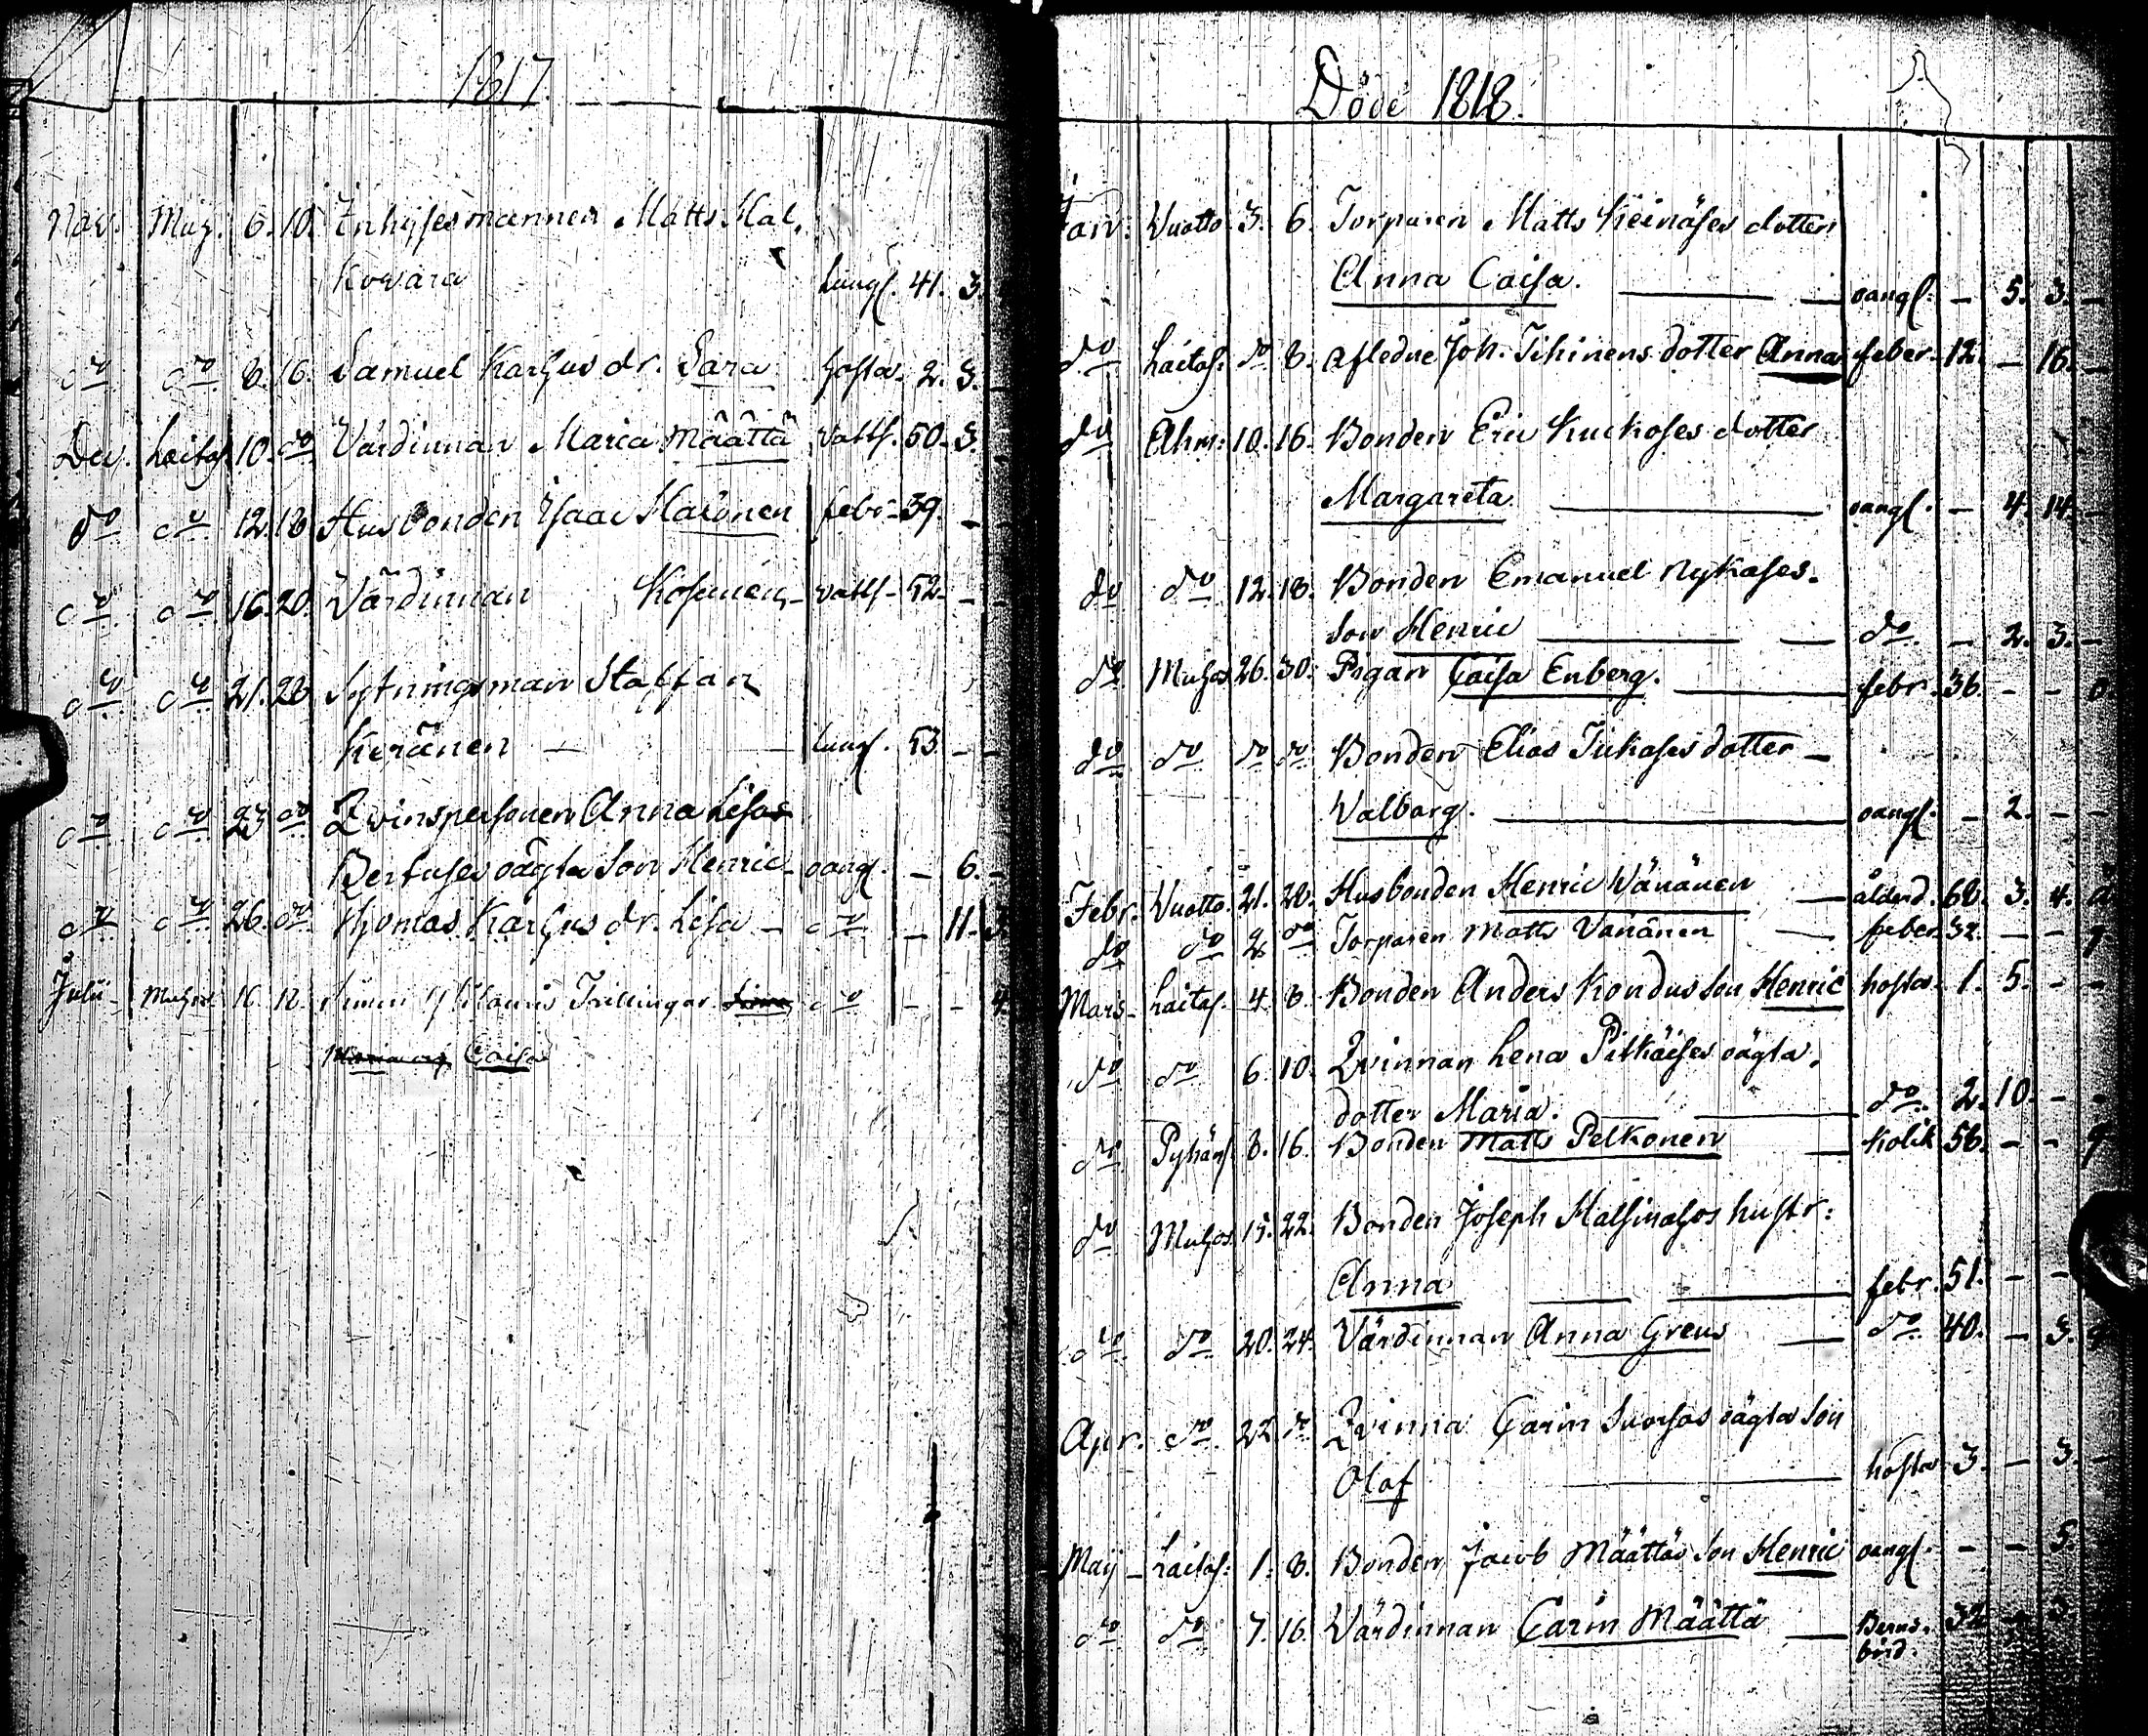 1817.
Nov. Muh. 6. 10. Inhysesmannen Matts Hal-
kovara lungs. 41. 3.
do do 8. 16. Samuel Karhus dr. Sara hosta. 2. 3. -
Dec. Laitas. 10. do Värdinnan Maria Määttä vatts. 50. 3. -
do do 12. 18. Husbonden Isaac Harinen febr. 39. - -
do do 16. 20. Värdinnan Kosunen - vatts. 52. - -
do do 21. 28. Sytningsman Staffan
Keränen - lungs. 53. - -
do do 23 do Qvinspersonen Anna Lisas
oägta Son Henric oangf. - 6. -
do do 26. do Thomas Karhus dr. Lisa - do - 11. 3.
Julii Muhos 11. 12. Trillingar do - - 4.
Caisa
Döde 1818.
Jan: Vuotto. 3. 6. Torparen Matts Keinäses dotter
Anna Caisa. oangf. - 5. 3. -
do Laitas: do 8. afledne Joh. Tihinens dotter Anna feber. 12. - 16. -
do Ahm: 10. 16. Bonden Eric Kuckoses dotter
Margareta oangf. - 4. 14. -
do do 12. 18. Bonden Emanuel Nykäses
Son Henric do - 2. 3. -
do Muhos 26. 30. Pigan Caisa Enberg. febr. 36. - -
do do do do Bonden Elias Tickases dotter -
Walborg. oangf. - 2. - -
Febr. Vuotto. 21. 28. Husbonden Henric Wänänen ålderd. 68. 3. 4.
do do 2. do Torparen Matts Vänänen feber. 32. - -
Mars - Laitas. 4. 8. Bonden Anders Kondus Son Henric hosta. 1. 5. - -
do do 6. 10. Qvinnan Lena Pitkäises oägta
dotter Maria. do. 2. 10. - -
do Pyhäns. 8. 16. Bonden Matts Pelkonen Kolik 56. - -
do Muhos 15. 22. Bonden Joseph Halsinahos hustr:
Anna febr. 51. - -
do do 20. 24. Värdinnan Anna Greus do 40. - 3.
Apr. do 22. do Qvinna Carin Suorsas oägta Son
Olof hosta 3. - 3. -
Maij - Laitas: 1. 8. Bonden Jacob Määttäs Son Henric oangf. - - 5.
do do 7. 16. Värdinnan Carin Määttä Barns-
börd. 32 - 3.